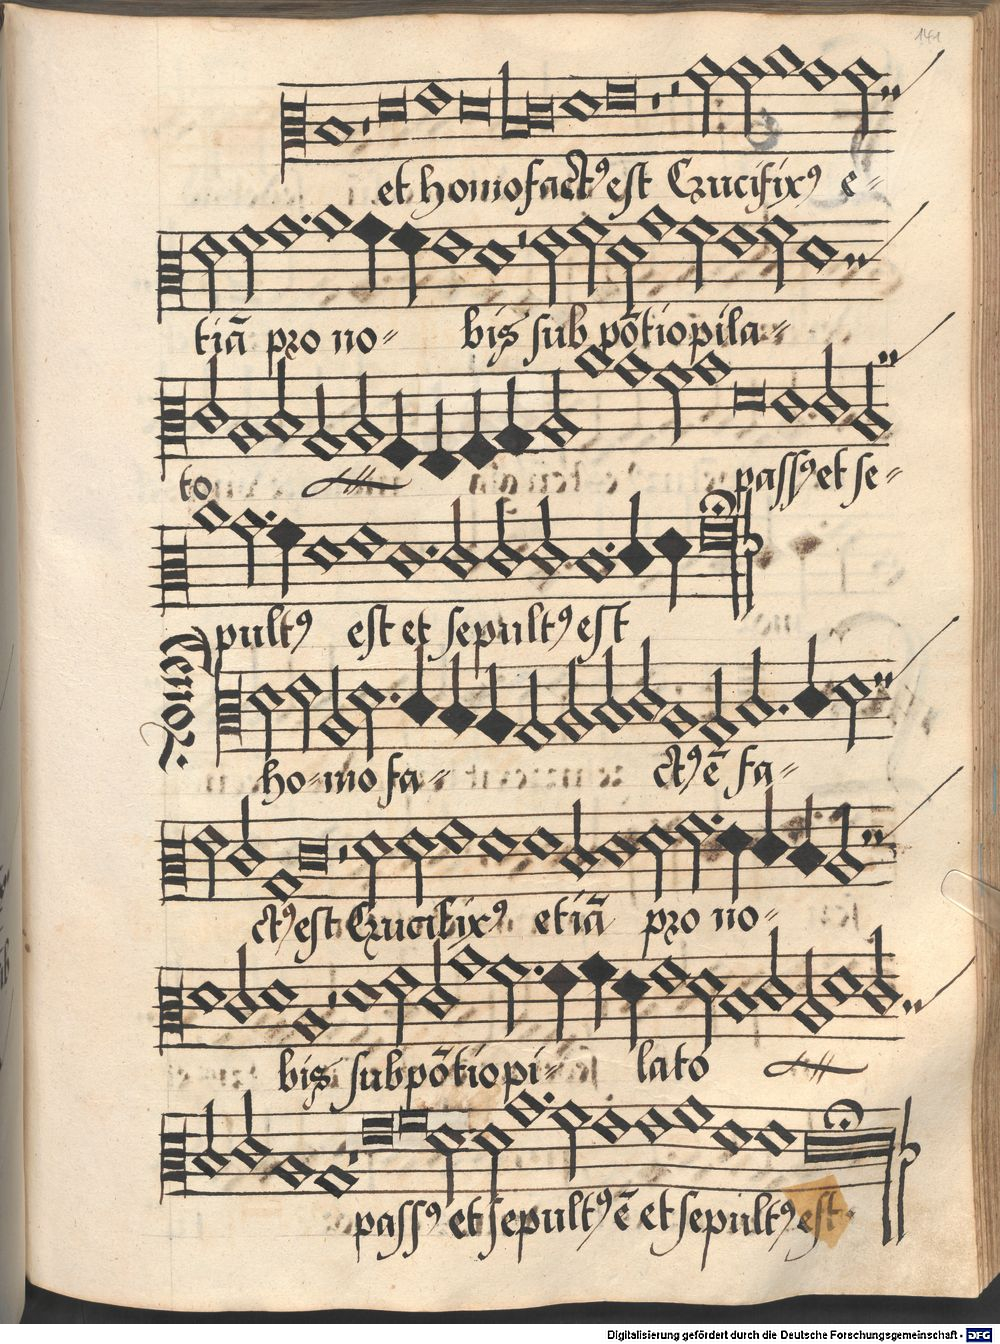 141
et homo fact⁹ est Crucifix⁹ e-
tiā pro no- bis sub pōtio pila-
to pass⁹ et se-
pult⁹ est et sepult⁹ est
Tenor
ho-mo fa- ct⁹ ē fa-
ct⁹ est Crucifix⁹ etiā pro no-
bis sub pōtio pi- lato
pass⁹ et sepult⁹ ē et sepult⁹ est
Digitalisierung gefördert durch die Deutsche Forschungsgemeinschaft - DFG